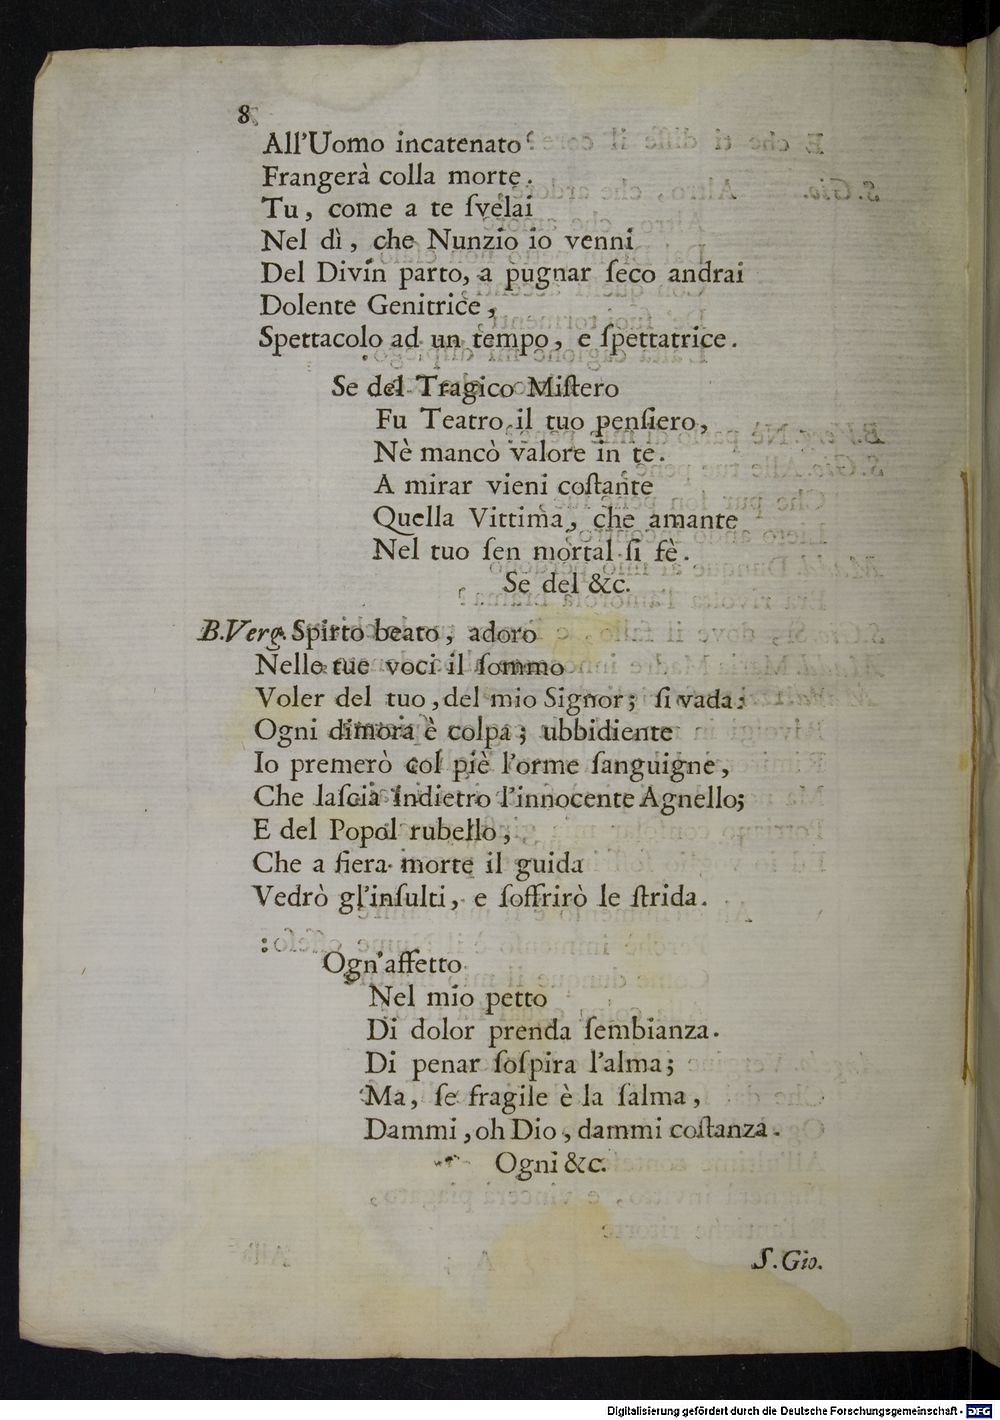 8
All'Uomo incatenato
Frangerà colla morte.
Tu, come a te ſvelai
Nel dì, che Nunzio io venni
Del Divin parto, a pugnar ſeco andrai
Dolente Genitrice,
Spettacolo ad un tempo, e ſpettatrice.
Se del Tragico Miſtero
Fu Teatro il tuo penſiero,
Nè mancò valore in te.
A mirar vieni coſtante
Quella Vittima, che amante
Nel tuo ſen mortal ſi fè.
Se del &c.
B.Verg. Spirto beato, adoro
Nelle tue voci il ſommo
Voler del tuo, del mio Signor; ſi vada:
Ogni dimora è colpa; ubbidiente
Io premerò col piè l'orme ſanguigne,
Che laſcia indietro l'innocente Agnello;
E del Popol rubello,
Che a fiera morte il guida
Vedrò gl'inſulti, e ſoffrirò le ſtrida.
Ogn'affetto
Nel mio petto
Di dolor prenda ſembianza.
Di penar ſoſpira l'alma;
Ma, ſe fragile è la ſalma,
Dammi, oh Dio, dammi coſtanza.
Ogni &c.
S. Gio.
Digitalisierung gefördert durch die Deutsche Forschungsgemeinschaft - DFG